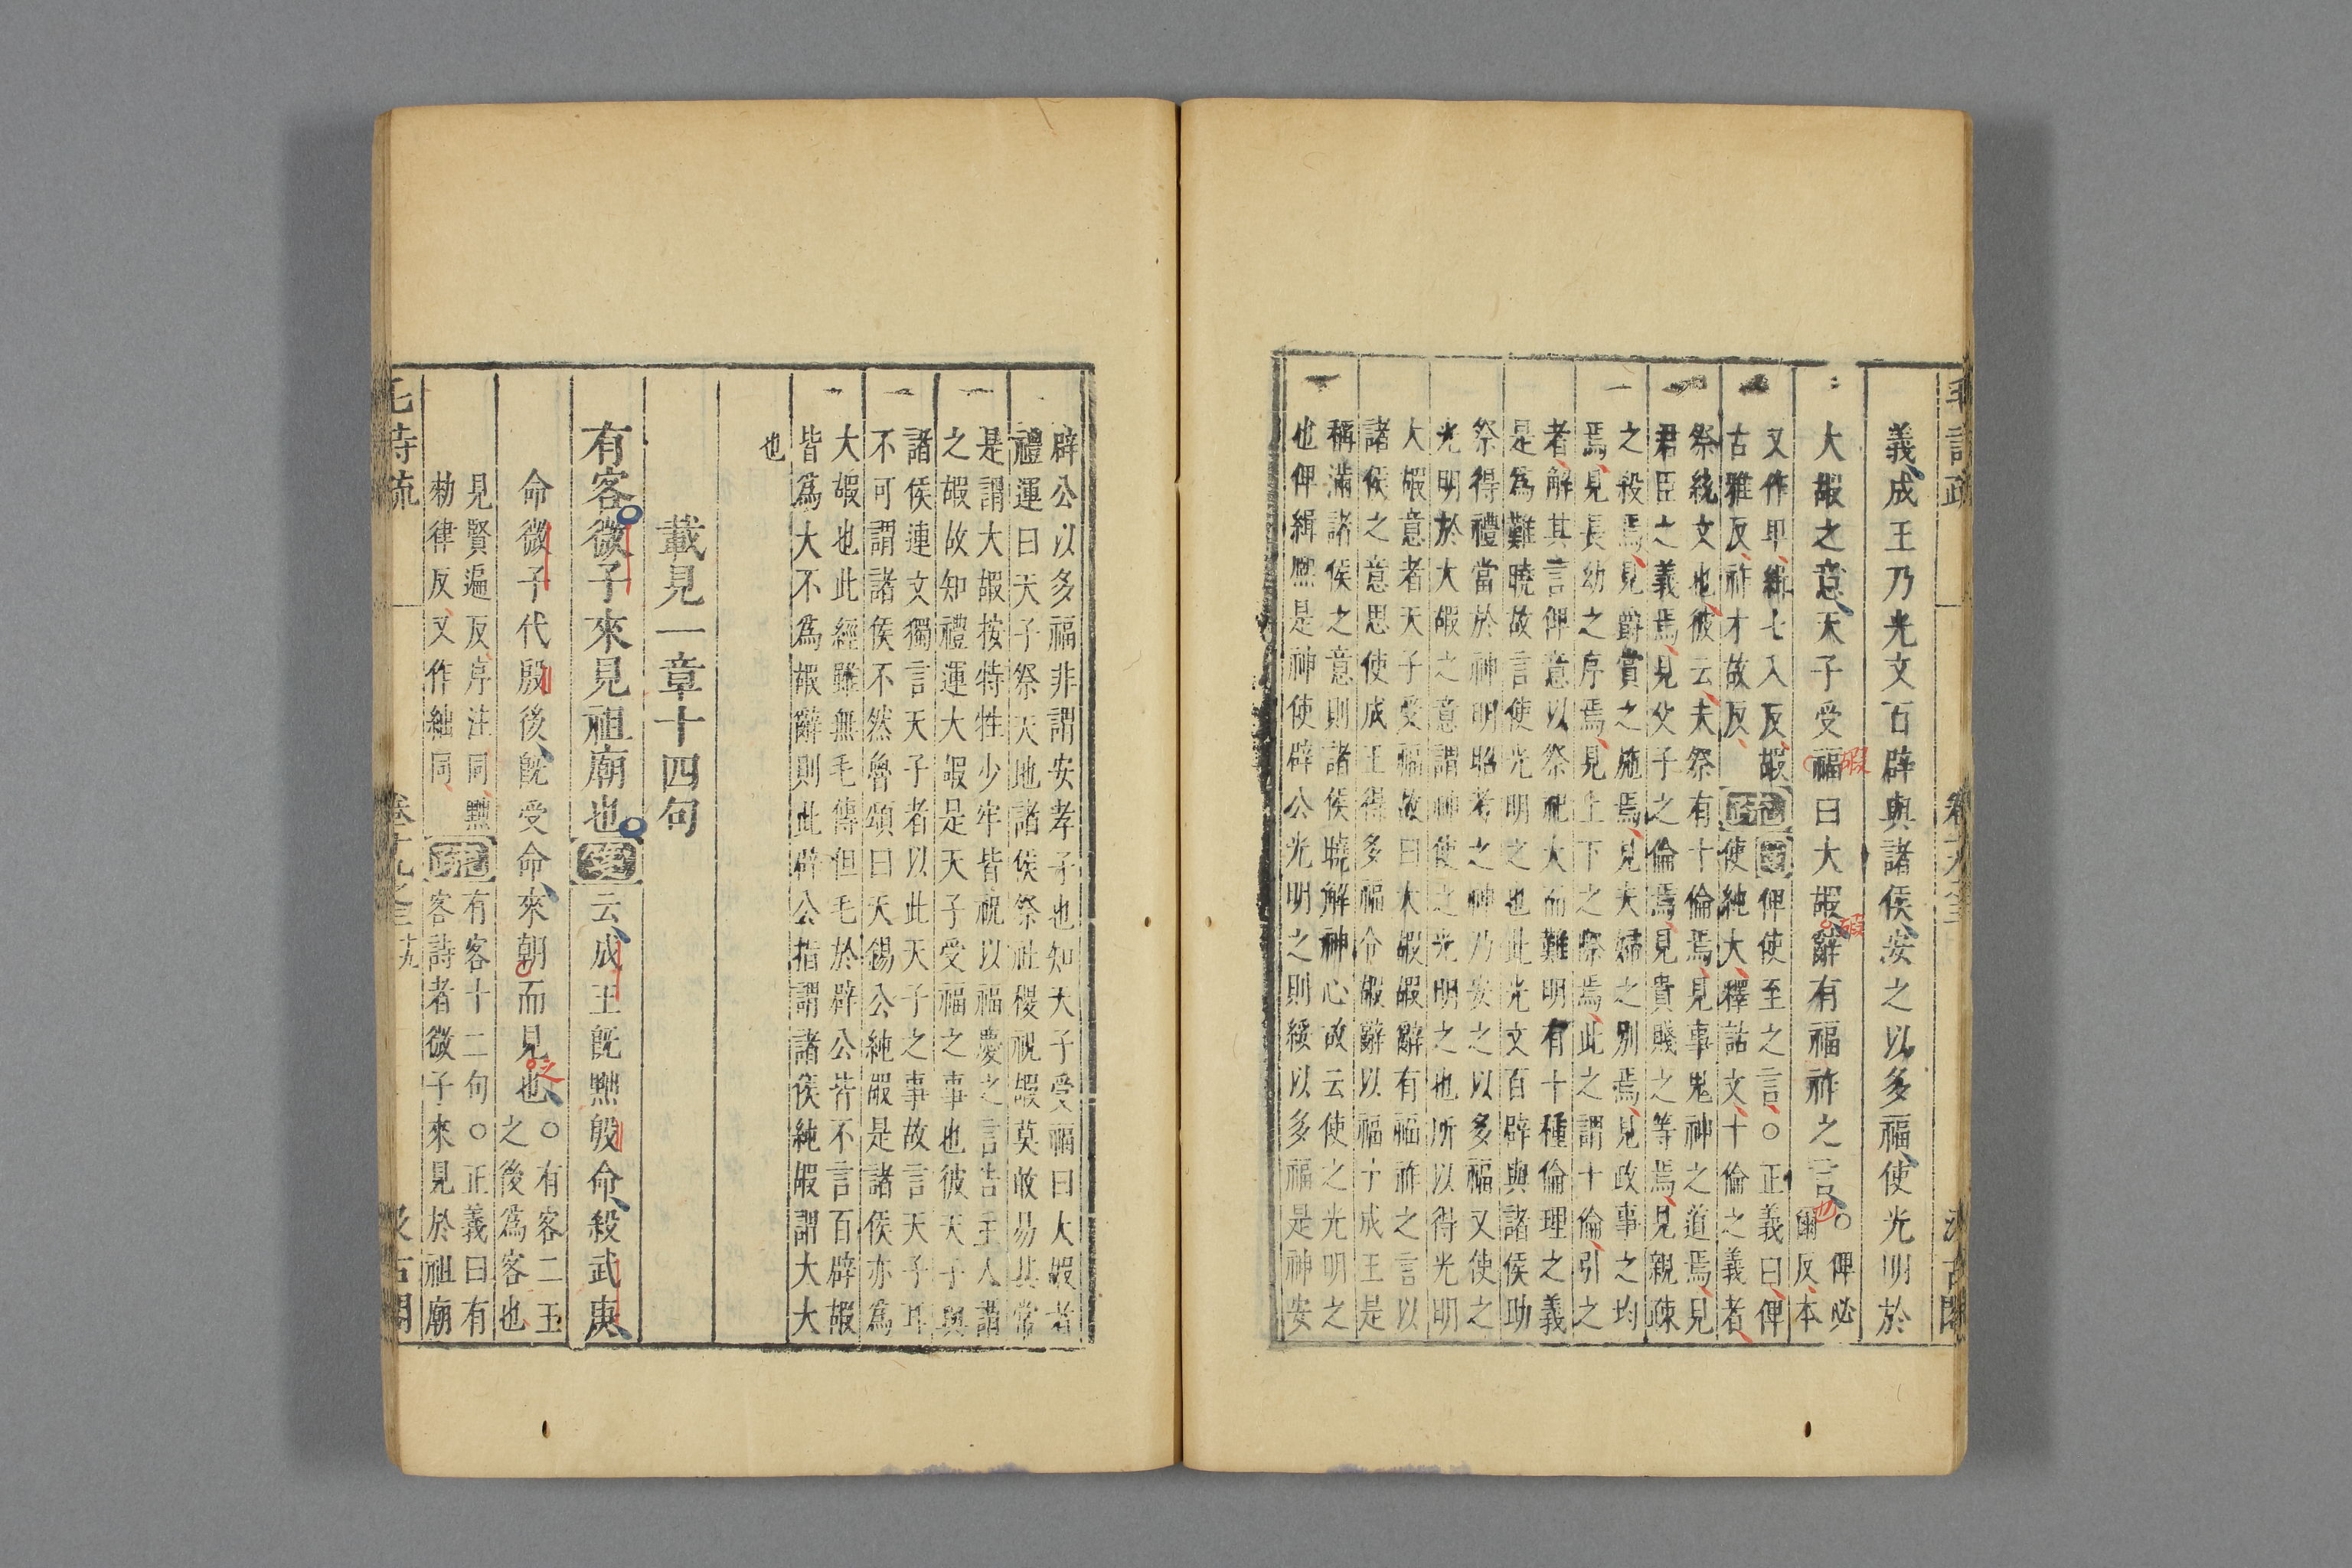 毛詩疏 卷十九之三 汲古閣
義成王乃光文百辟與諸侯安之以多福使光明於
大嘏之意天子受福曰大嘏辭有福祚之言○俾必
爾反本
又作卑緝七入反嘏
古雅反祚才故反
疏箋俾使至之言○正義曰俾
使純大釋詁文十倫之義者
祭統文也彼云夫祭有十倫焉見事鬼神之道焉見
君臣之義焉見父子之倫焉見貴賤之等焉見親疎
之殺焉見爵賞之施焉見夫婦之別焉見政事之均
焉見長幼之序焉見上下之際焉此之謂十倫引之
者解其言俾意以祭祀大而難明有十種倫理之義
是爲難曉故言使光明之也此光文百辟與諸侯助
祭得禮當於神明昭考之神乃安之以多福又使之
光明於大嘏之意謂神使之光明之也所以得光明
大嘏意者天子受福故曰大嘏嘏辭有福祚之言以
諸侯之意思使成王得多福令嘏辭以福予成王是
稱滿諸侯之意則諸侯曉解神心故云使之光明之
也俾緝熙是神使辟公光明之則綏以多福是神安
辟公以多福非謂安孝子也知天子受福曰大嘏者
禮運曰天子祭天地諸侯祭社稷祝嘏莫敢易其常
是謂大嘏按特牲少牢皆祝以福慶之言告主人謂
之嘏故知禮運大嘏是天子受福之事也彼天子與
諸侯連文獨言天子者以此天子之事故言天子耳
不可謂諸侯不然魯頌曰天錫公純嘏是諸侯亦爲
大嘏也此經雖無毛傳但毛於辟公皆不言百辟嘏
皆爲大不爲嘏辭則此辟公指謂諸侯純嘏謂大大
也
載見一章十四句
有客微子來見祖廟也箋云成王既黜殷命殺武庚
命微子代殷後既受命來朝而見也○有客二王
之後爲客也
見賢遍反序注同黜
勑律反又作絀同
疏有客十二句○正義曰有
客詩者微子來見於祖廟
毛詩疏 卷十九之三 十九 汲古閣
嘏
嘏
也
之